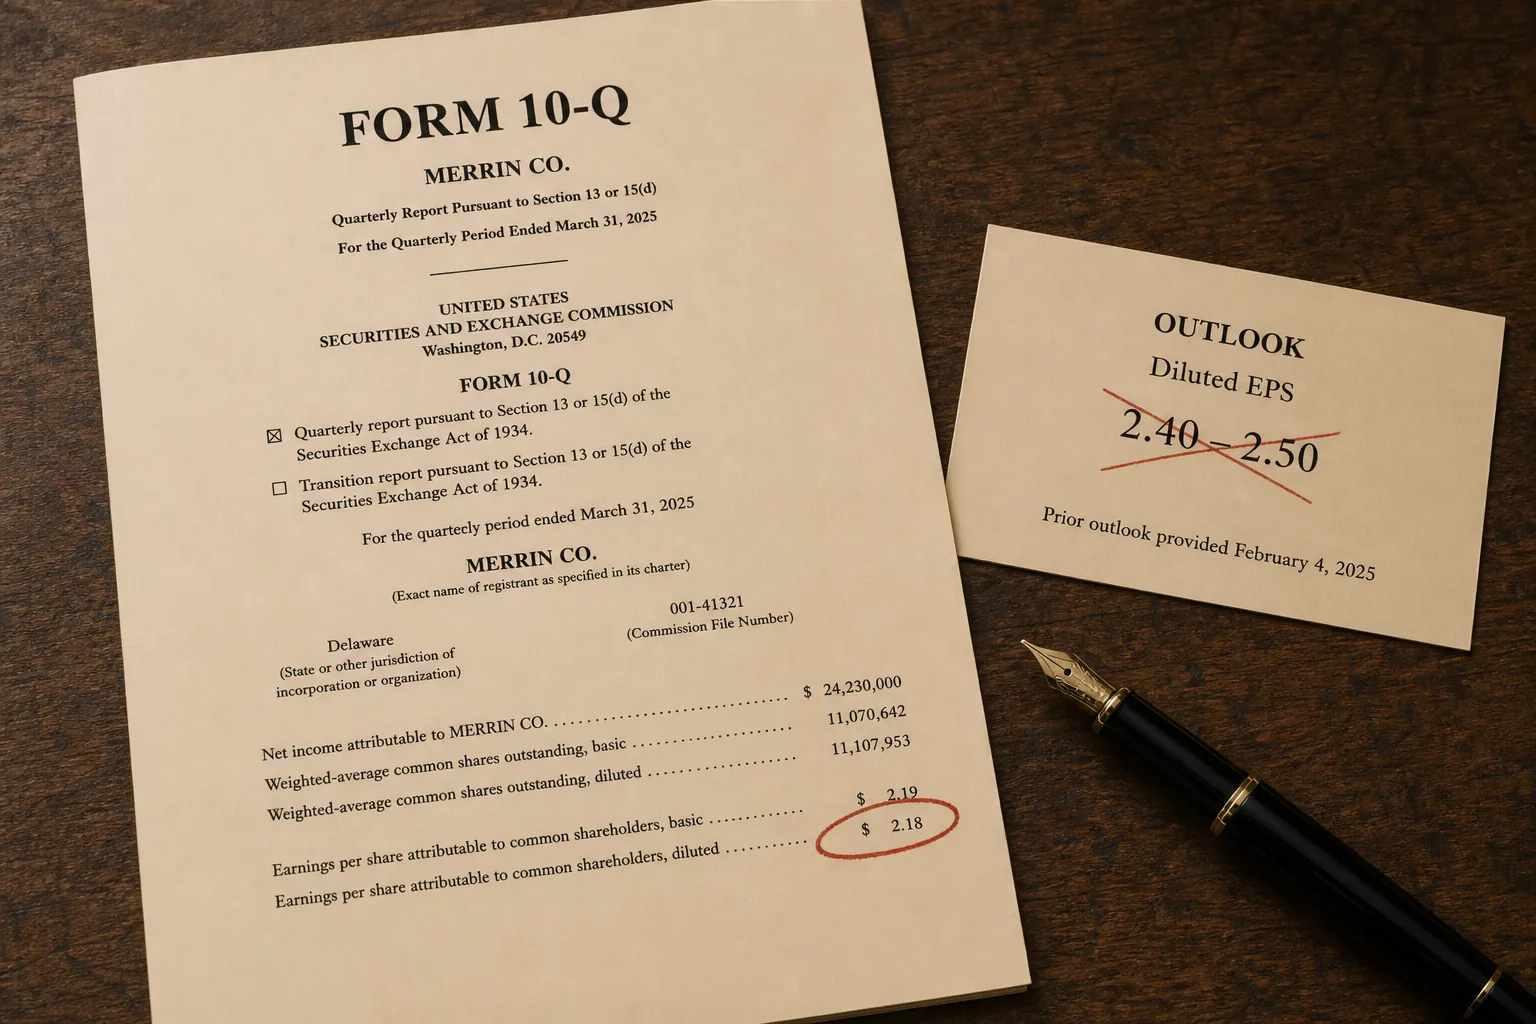 FORM 10-Q
MERRIN CO.
Quarterly Report Pursuant to Section 13 or 15(d)
For the Quarterly Period Ended March 31, 2025
UNITED STATES
SECURITIES AND EXCHANGE COMMISSION
Washington, D.C. 20549
FORM 10-Q
☒ Quarterly report pursuant to Section 13 or 15(d) of the
Securities Exchange Act of 1934.
☐ Transition report pursuant to Section 13 or 15(d) of the
Securities Exchange Act of 1934.
For the quartecly period ended March 31, 2025
MERRIN CO.
(Exact name of registrant as specified in its charter)
Delaware
(State or other jurisdiction of
incorporation or organization)
001-41321
(Commission File Number)
Net income attributable to MERRIN CO. .............................. $ 24,230,000
Weighted-average common shares outstanding, basic .................... 11,070,642
Weighted-average common shares outstanding, diluted .................. 11,107,953
Earnings per share attributable to common shareholders, basic ............ $ 2.19
Earnings per share attributable to common shareholders, diluted .......... $ 2.18
OUTLOOK
Diluted EPS
2.40 – 2.50
Prior outlook provided February 4, 2025